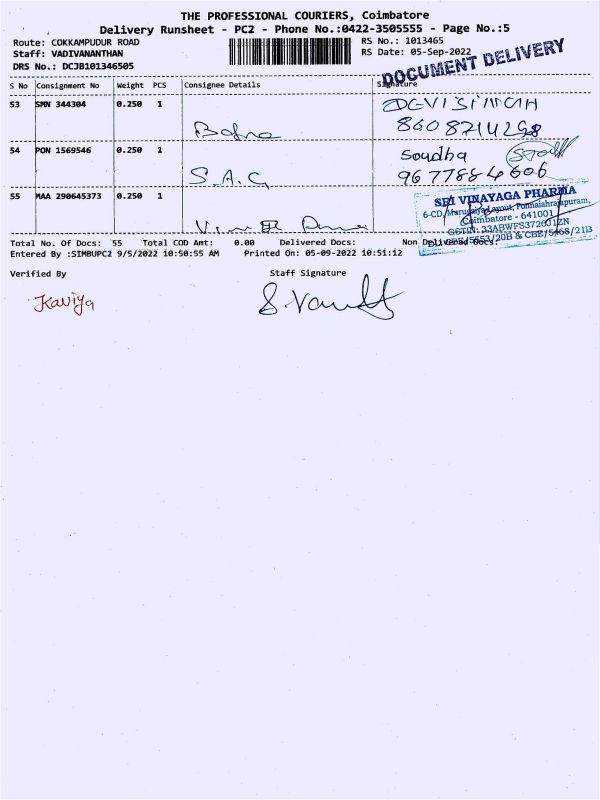 THE PROFESSIONAL COURIERS, Coimbatore
Delivery Runsheet - PC2 - Phone No.:0422-3505555 - Page No.:5
Route: COKKAMPUDUR ROAD
RS No.: 1013465
Staff: VADIVANANTHAN
RS Date: 05-Sep-2022
DRS No.: DCJB101346505
DOCUMENT DELIVERY
S No Consignment No Weight PCS Consignee Details Signature
53 SMN 344304 0.250 1
8608714298
54 PON 1569546 0.250 1 Soudha
S.A.G 9677884606
55 MAA 290645373 0.250 1
SRI VINAYAGA PHARMA
6-CD, Marudhamalai Layout, Ponnaiahrajapuram,
Coimbatore - 641001
GSTIN: 33ABWFS3726J1ZN
20B & CBE/5468/21B
Total No. Of Docs: 55 Total COD Amt: 0.00 Delivered Docs: Non Delivered Docs:
Entered By :SIMBUPC2 9/5/2022 10:50:55 AM Printed On: 05-09-2022 10:51:12
Verified By Staff Signature
Kaviya